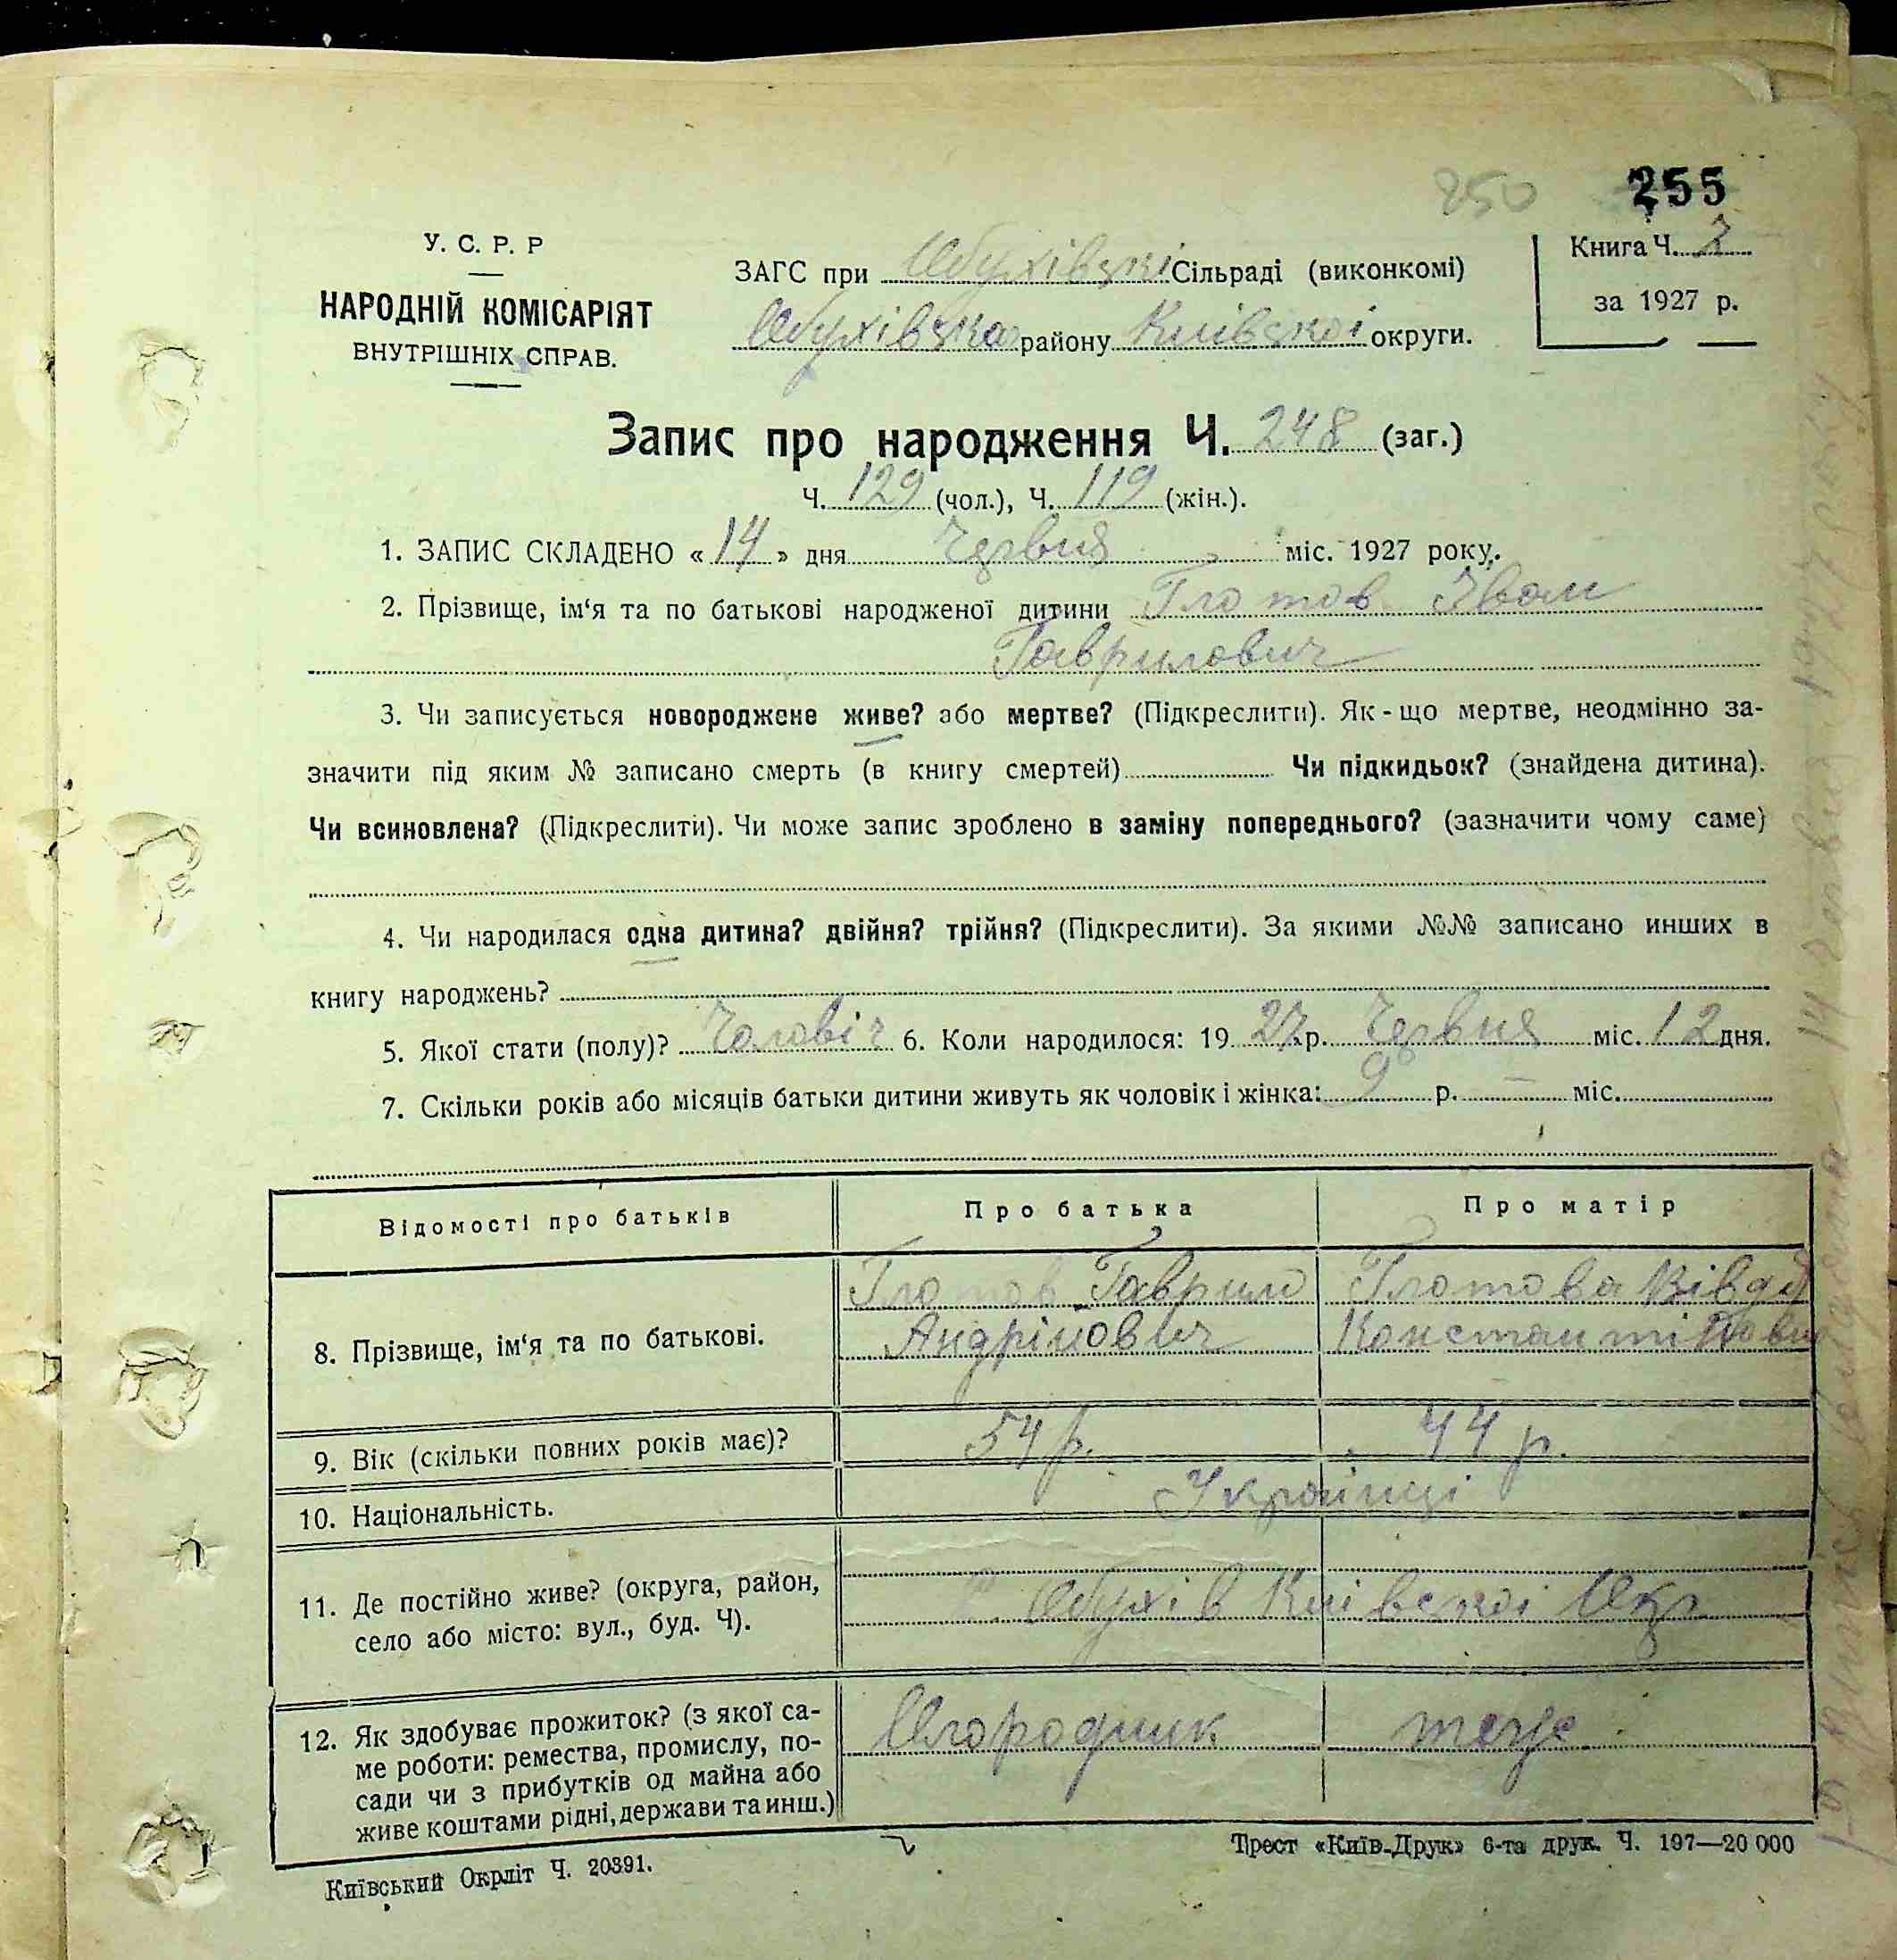 250 255
У. С. Р. Р
НАРОДНІЙ КОМІСАРІЯТ
ВНУТРІШНІХ СПРАВ.
ЗАГС при Обухівзкі Сільраді (виконкомі)
Обухівзка району Київзкої округи.
Книга Ч. 2
за 1927 р.
Запис про народження Ч. 248 (заг.)
Ч. 129 (чол.), Ч. 119 (жін.).
1. ЗАПИС СКЛАДЕНО « 14 » дня Червня міс. 1927 року.
2. Прізвище, ім‘я та по батькові народженої дитини Глотов Іван
Гаврилович
3. Чи записується новороджене живе? або мертве? (Підкреслити). Як-що мертве, неодмінно за-
значити під яким № записано смерть (в книгу смертей) Чи підкидьок? (знайдена дитина).
Чи всиновлена? (Підкреслити). Чи може запис зроблено в заміну попереднього? (зазначити чому саме)
4. Чи народилася одна дитина? двійня? трійня? (Підкреслити). За якими №№ записано инших в
книгу народжень?
5. Якої стати (полу)? Чоловіч 6. Коли народилося: 19 27 р. Червня міс. 12 дня.
7. Скільки років або місяців батьки дитини живуть як чоловік і жінка: 9 р. — міс.
Відомості про батьків Про батька Про матір
8. Прізвище, ім‘я та по батькові.
Глотов Гаврило Глотова
Андрійович
9. Вік (скільки повних років має)? 54 р. 44 р.
10. Національність. Українці
11. Де постійно живе? (округа, район,
село або місто: вул., буд. Ч).
Обухів Київської Окр
12. Як здобуває прожиток? (з якої са-
ме роботи: ремества, промислу, по-
сади чи з прибутків од майна або
живе коштами рідні, держави та инш.)
Огородник теже
Київський Окрліт Ч. 20391.
Трест «Київ-Друк» 6-та друк. Ч. 197—20 000